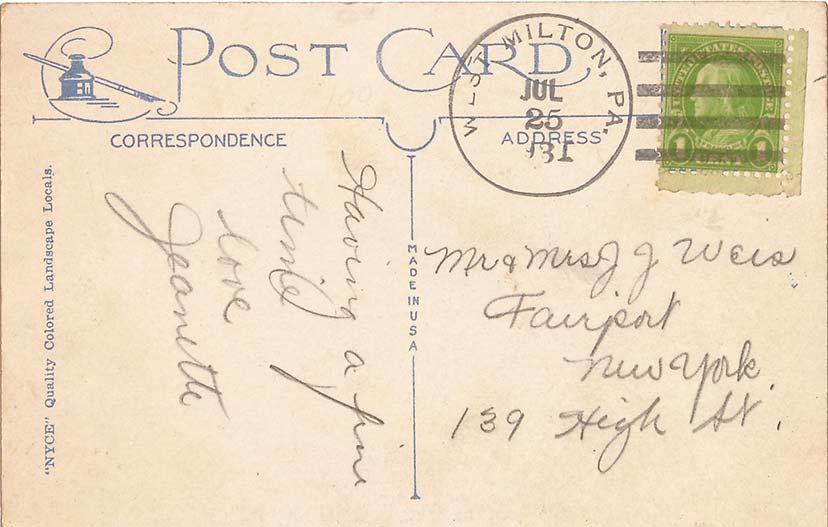 POST CARD
CORRESPONDENCE
ADDRESS
WEST MILTON, PA.
JUL
25
1931
UNITED STATES POSTAGE
1 CENT 1
"NYCE" Quality Colored Landscape Locals.
MADE IN USA
Having a fine
time
love
Jeanette
Mr & Mrs J J Weis
Fairport
New York
139 High St.